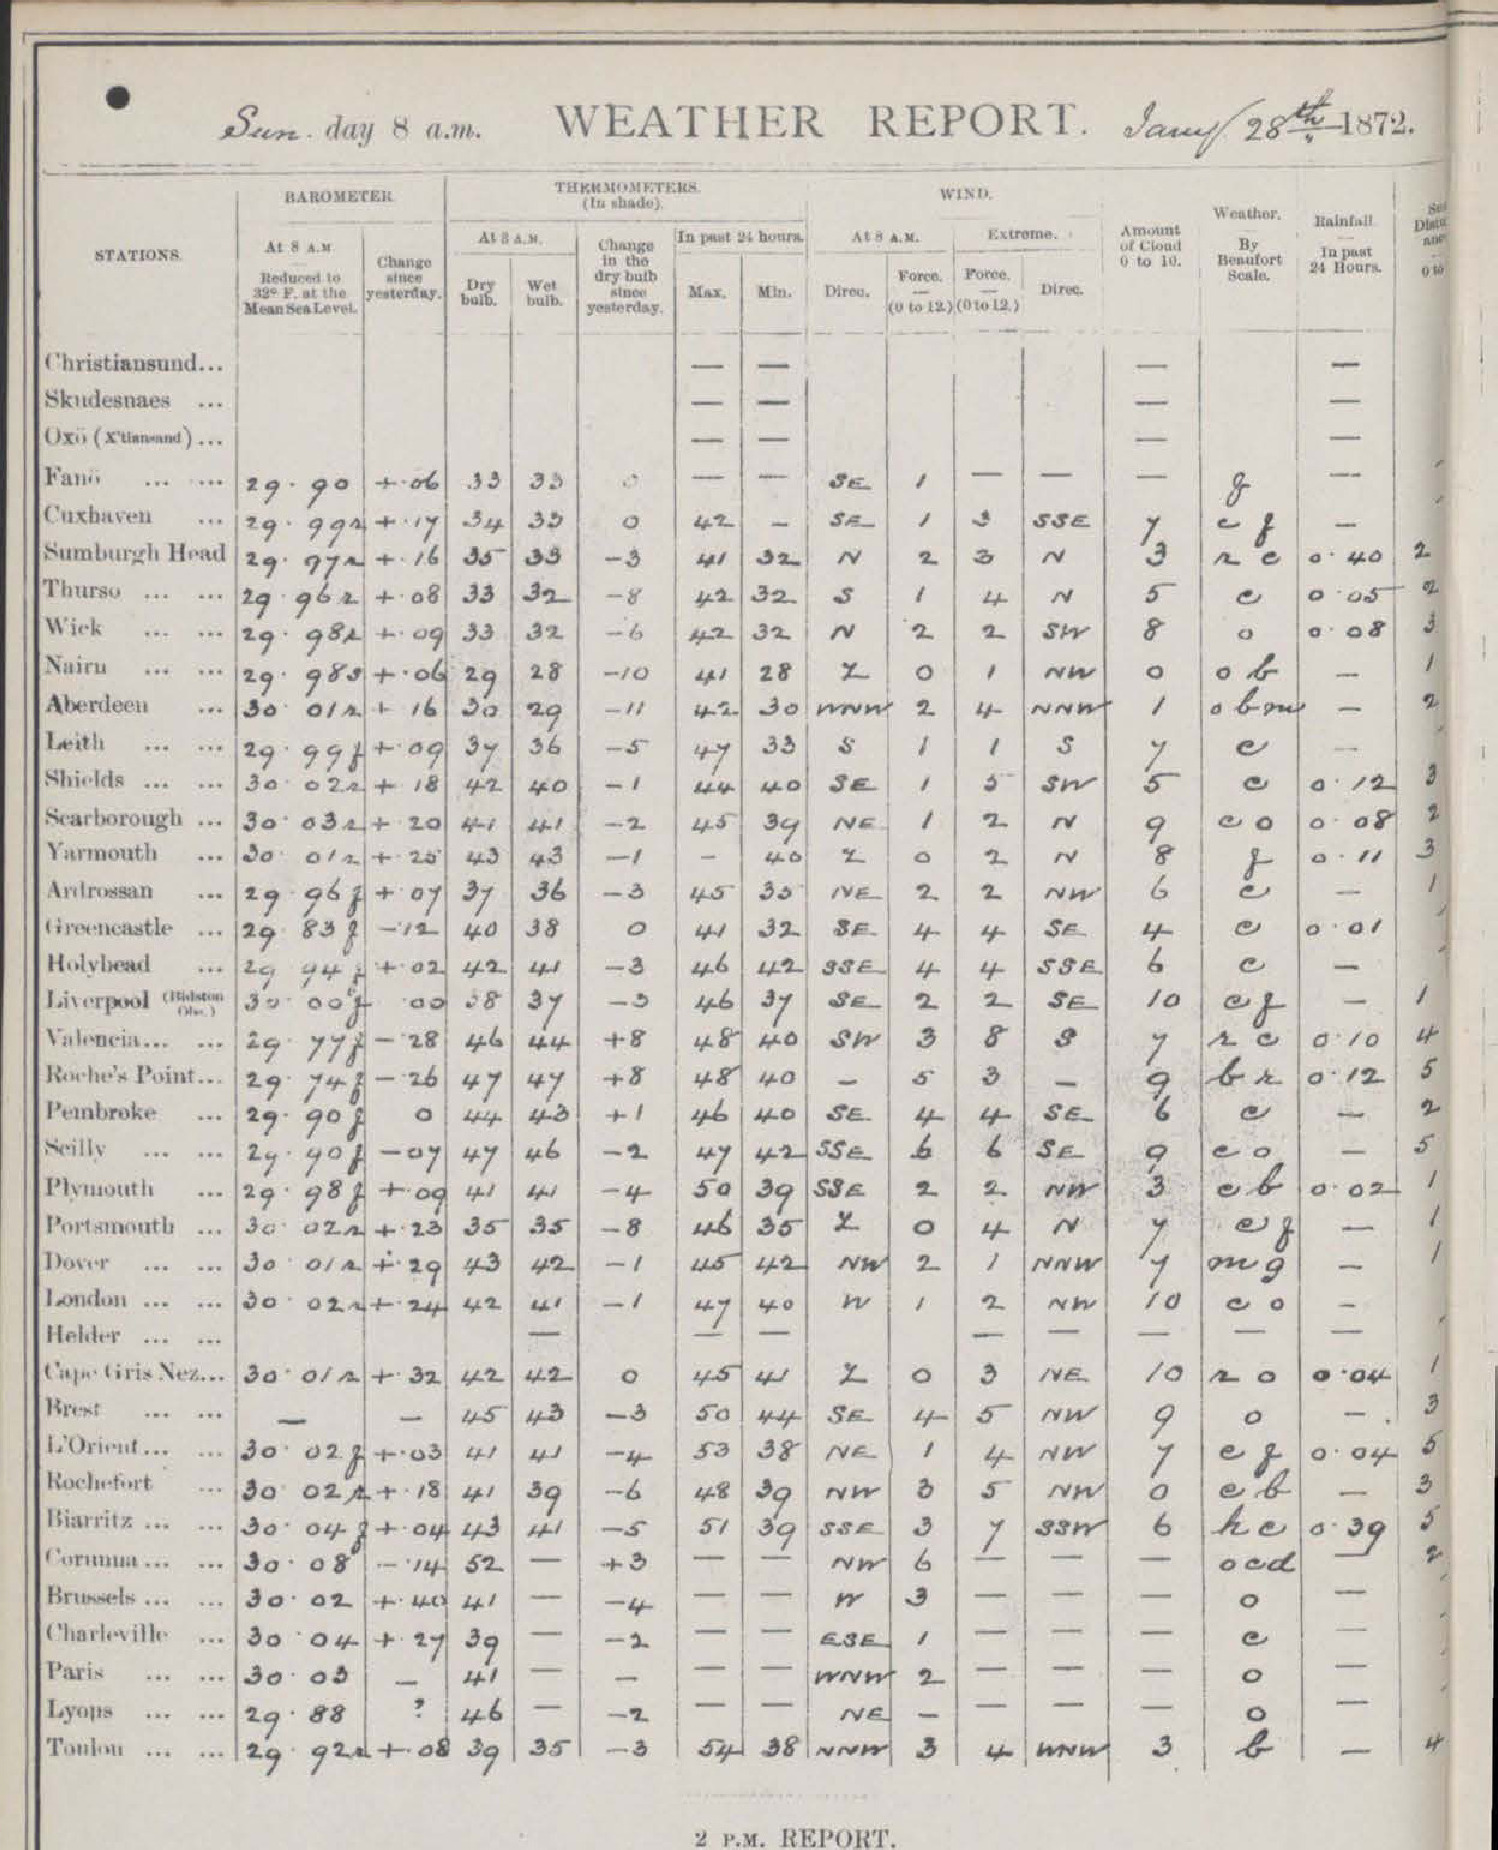 Sun. day 8 a.m. WEATHER REPORT. Jany 28th 1872.
STATIONS. BAROMETER. THERMOMETERS. (In shade). WIND. Amount of Cloud 0 to 10. Weather. By Beaufort Scale. Rainfall. In past 24 Hours.
At 8 A.M. Reduced to 32° F. at the Mean Sea Level. Change since yesterday. At 8 A.M. Dry bulb. Wet bulb. Change in the dry bulb since yesterday. In past 24 hours. Max. Min. At 8 A.M. Direc. Force. (0 to 12.) Extreme. Force. (0 to 12.) Direc.
Christiansund... — — — —
Skudesnaes ... — — — —
Oxö (X'tiansand)... — — — —
Fanö ... ... 29.90 +.06 33 33 0 — — SE 1 — — — f —
Cuxhaven ... 29.99r +.17 34 33 0 42 - SE 1 3 SSE 7 c f —
Sumburgh Head 29.97r +.16 35 33 -3 41 32 N 2 3 N 3 r c 0.40 2
Thurso ... ... 29.96r +.08 33 32 -8 42 32 S 1 4 N 5 c 0.05 2
Wick ... ... 29.98r +.09 33 32 -6 42 32 N 2 2 SW 8 o 0.08 3
Nairn ... ... 29.98s +.06 29 28 -10 41 28 Z 0 1 NW 0 o b — 1
Aberdeen ... 30.01r +.16 30 29 -11 42 30 WNW 2 4 NNW 1 o b m — 2
Leith ... ... 29.99f +.09 37 36 -5 47 33 S 1 1 S 7 c —
Shields ... ... 30.02r +.18 42 40 -1 44 40 SE 1 5 SW 5 c 0.12 3
Scarborough ... 30.03r +.20 41 41 -2 45 39 NE 1 2 N 9 c o 0.08 2
Yarmouth ... 30.01r +.25 43 43 -1 - 40 Z 0 2 N 8 f 0.11 3
Ardrossan ... 29.96f +.07 37 36 -3 45 35 NE 2 2 NW 6 c — 1
Greencastle ... 29.83f -.12 40 38 0 41 32 SE 4 4 SE 4 c 0.01
Holyhead ... 29.94f +.02 42 41 -3 46 42 SSE 4 4 SSE 6 c —
Liverpool (Bidston Obs.) 30.00f .00 38 37 -3 46 37 SE 2 2 SE 10 c f — 1
Valencia... ... 29.77f -.28 46 44 +8 48 40 SW 3 8 S 7 r c 0.10 4
Roche's Point... 29.74f -.26 47 47 +8 48 40 - 5 3 - 9 b r 0.12 5
Pembroke ... 29.90f 0 44 43 +1 46 40 SE 4 4 SE 6 c — 2
Scilly ... ... 29.90f -07 47 46 -2 47 42 SSE 6 6 SE 9 c o — 5
Plymouth ... 29.98f +.09 41 41 -4 50 39 SSE 2 2 NW 3 c b 0.02 1
Portsmouth ... 30.02r +.23 35 35 -8 46 35 Z 0 4 N 7 c f — 1
Dover ... ... 30.01r +.29 43 42 -1 45 42 NW 2 1 NNW 7 m g — 1
London ... ... 30.02r +.24 42 41 -1 47 40 W 1 2 NW 10 c o -
Helder ... ... — — — — — — — —
Cape Gris Nez... 30.01r +.32 42 42 0 45 41 Z 0 3 NE 10 r o 0.04 1
Brest ... ... — - 45 43 -3 50 44 SE 4 5 NW 9 o - 3
L'Orient... ... 30.02f +.03 41 41 -4 53 38 NE 1 4 NW 7 c f 0.04 5
Rochefort ... 30.02r +.18 41 39 -6 48 39 NW 3 5 NW 0 c b — 3
Biarritz ... ... 30.04f +.04 43 41 -5 51 39 SSE 3 7 SSW 6 h c 0.39 5
Corunna... ... 30.08 -.14 52 — +3 — — NW 6 — — — o c d — 2
Brussels ... ... 30.02 +.40 41 — -4 — — W 3 — — — o —
Charleville ... 30.04 +.27 39 — -2 — — ESE 1 — — — c —
Paris ... ... 30.03 - 41 — - — — WNW 2 — — — o —
Lyons ... ... 29.88 ? 46 — -2 — — NE - — — — o —
Toulon ... ... 29.92r +.08 39 35 -3 54 38 NNW 3 4 WNW 3 b — 4
2 P.M. REPORT.